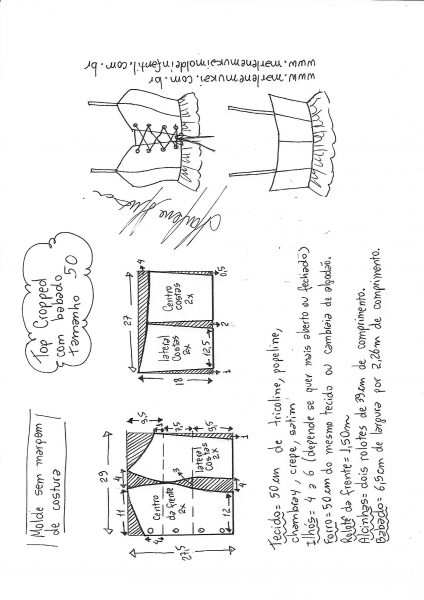 Molde sem margem
de costura
Top Cropped
com babado
tamanho 50
www.marlenemukai.com.br
www.marlenemukaimoldeinfantil.com.br
Marlene Mukai
29
11
4
9,5
4
Centro
da frente
2x
3
lateral
costas
2x
27,5
12
4
1
27
4
lateral
costas
2x
Centro
costas
2x
18
12,5
1
2
0,5
Tecido= 50 cm de tricoline, popeline,
chambray, crepe, satim
Ilhós= 4 a 6 (depende se quer mais aberto ou fechado)
Forro= 50 cm do mesmo tecido ou cambraia de algodão.
Rolotê da frente= 1,50m
Alcinhas= dois rolotes de 39 cm de comprimento.
Babado= 6,5 cm de largura por 2,26m de comprimento.